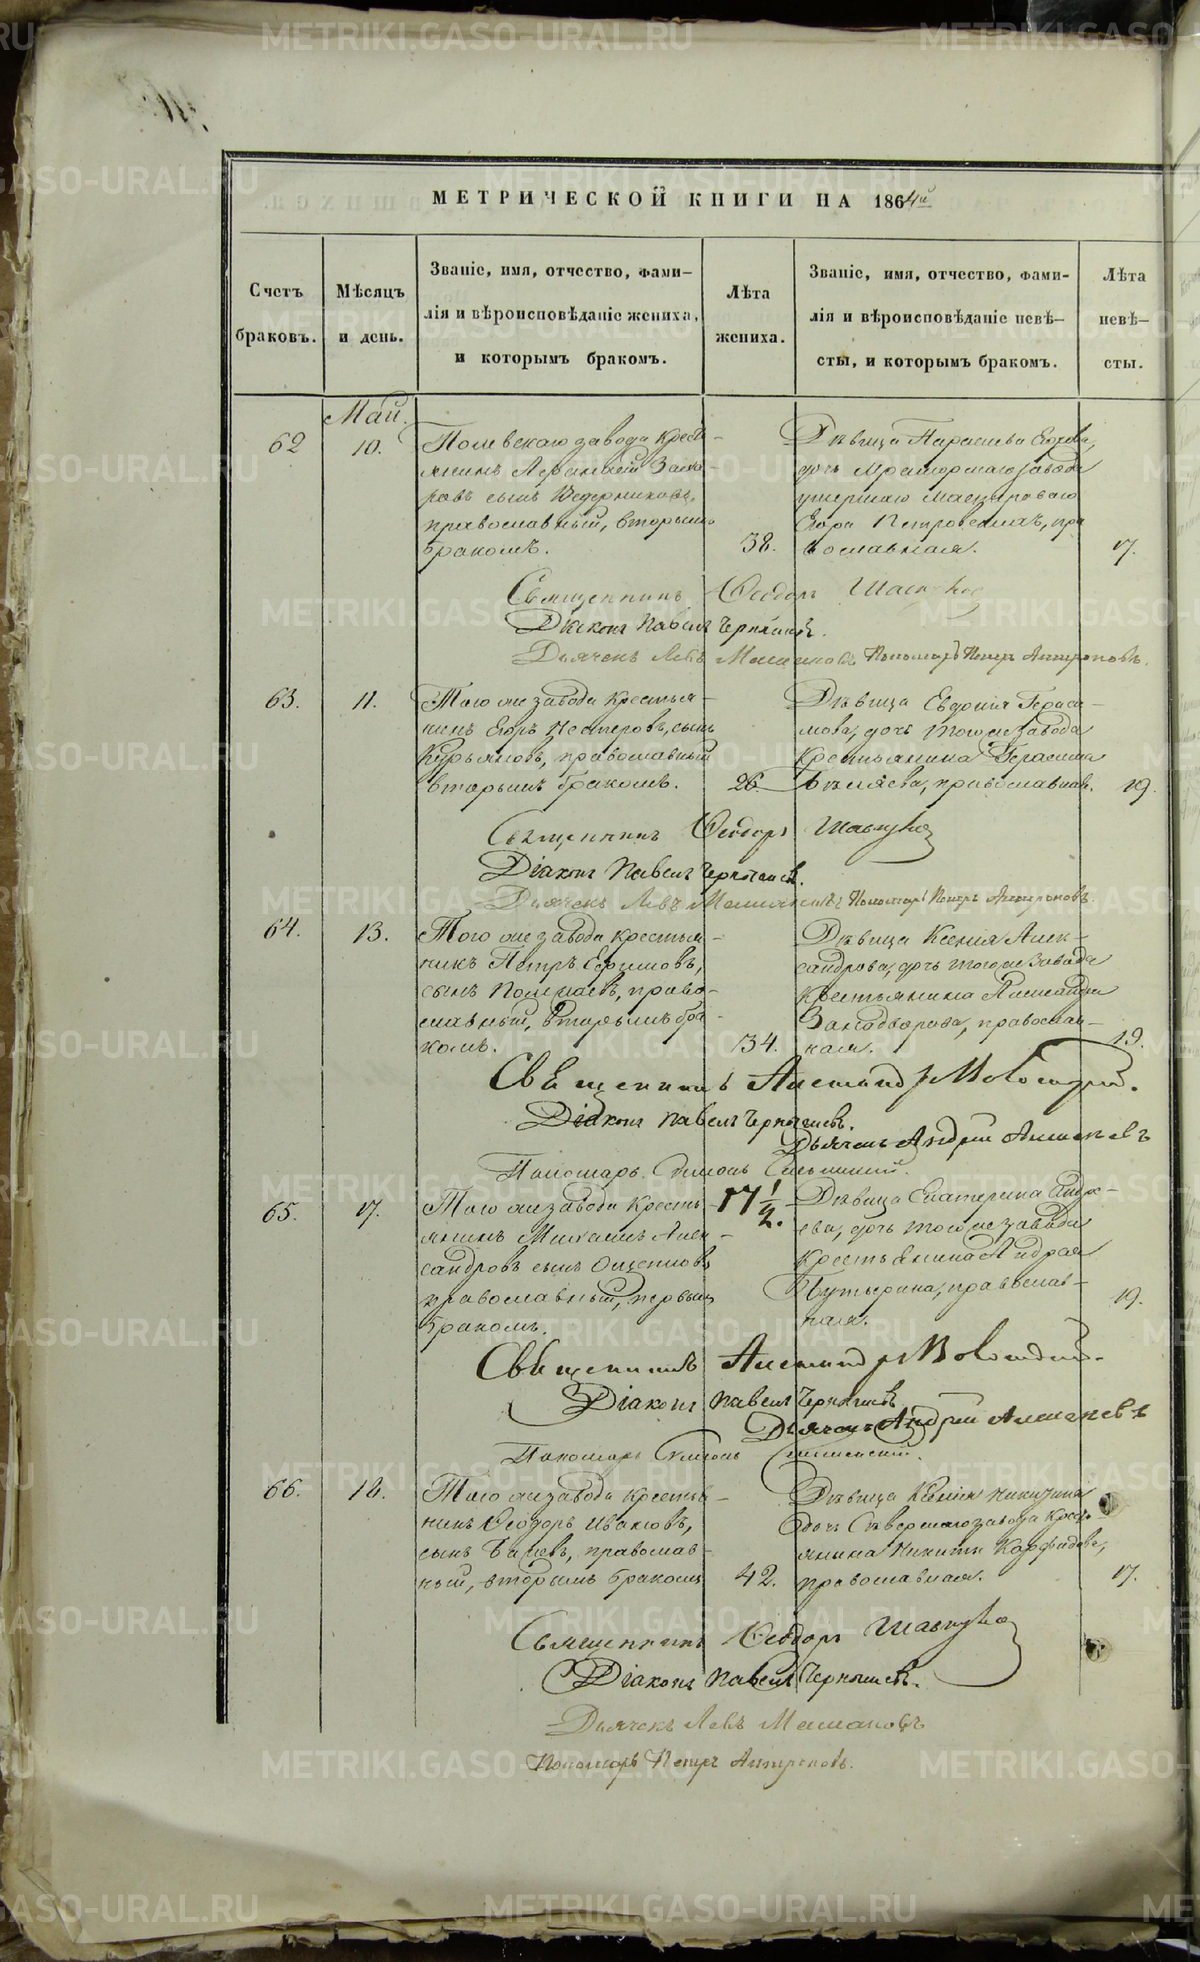 МЕТРИЧЕСКОЙ КНИГИ НА 1864й
Счетъ браковъ.
Мѣсяцъ и день.
Званіе, имя, отчество, фами–
лія и вѣроисповѣданіе жениха,
и которымъ бракомъ.
Лѣта жениха.
Званіе, имя, отчество, фами–
лія и вѣроисповѣданіе невѣ–
сты, и которымъ бракомъ.
Лѣта невѣ–
сты.
Май.
62
10.
Полевскаго завода кресть
янинъ
ровъ сынъ Ведерниковъ,
православный, вторымъ
бракомъ.
38.
Дѣвица Параскева Егорова,
дочь Мраморскаго завода
умершаго мастероваго
Егора Петровскихъ, пра
вославная.
17.
Священникъ Ѳеодоръ
Діаконъ Павелъ Чернышевъ.
Дьячекъ Левъ Пономарь Петръ Антроповъ.
63.
11.
Того же завода крестья–
нинъ Егоръ Несторовъ, сынъ
Курьяновъ, православный
вторымъ бракомъ.
26.
Дѣвица Евдокія Гераси–
мова, дочь того же завода
Крестьянина Герасима
Бѣляева, православная.
19.
Священникъ Ѳеодоръ
Діаконъ Павелъ Чернышевъ.
Дьячекъ Левъ Пономарь Петръ Антроповъ.
64.
13.
Того же завода крестья–
нинъ Петръ Ефимовъ,
сынъ право–
славный, вторымъ бра–
комъ.
34.
Дѣвица Ксенія Алек–
сандрова, дочь того же завода
Крестьянина Александра
Заводворова, православ–
ная.
19.
Священникъ Александръ
Діаконъ Павелъ Чернышевъ.
Дьячекъ Андрей
Пономарь Симеонъ
65.
17.
Того же завода кресть–
янинъ Михаилъ Алек–
сандровъ сынъ Ощепковъ
православный, первымъ
бракомъ.
17 1/2.
Дѣвица Екатерина Андре–
ева, дочь того же завода
крестьянина Андрея
Путырина, православ–
ная.
19.
Священникъ Александръ
Діаконъ Павелъ Чернышевъ
Дьячекъ Андрей
Пономарь Симеонъ
66.
18.
Того же завода крестья–
нинъ Ѳеодоръ Ивановъ,
сынъ православ–
ный, вторымъ бракомъ
42.
Дѣвица Ксенія Никитина
дочь Сѣверскаго завода Крест–
янина Никиты Карфидова,
православная.
17.
Священникъ Ѳеодоръ
Діаконъ Павелъ Чернышевъ.
Дьячекъ Левъ
Пономарь Петръ Антроповъ.
METRIKI.GASO-URAL.RU